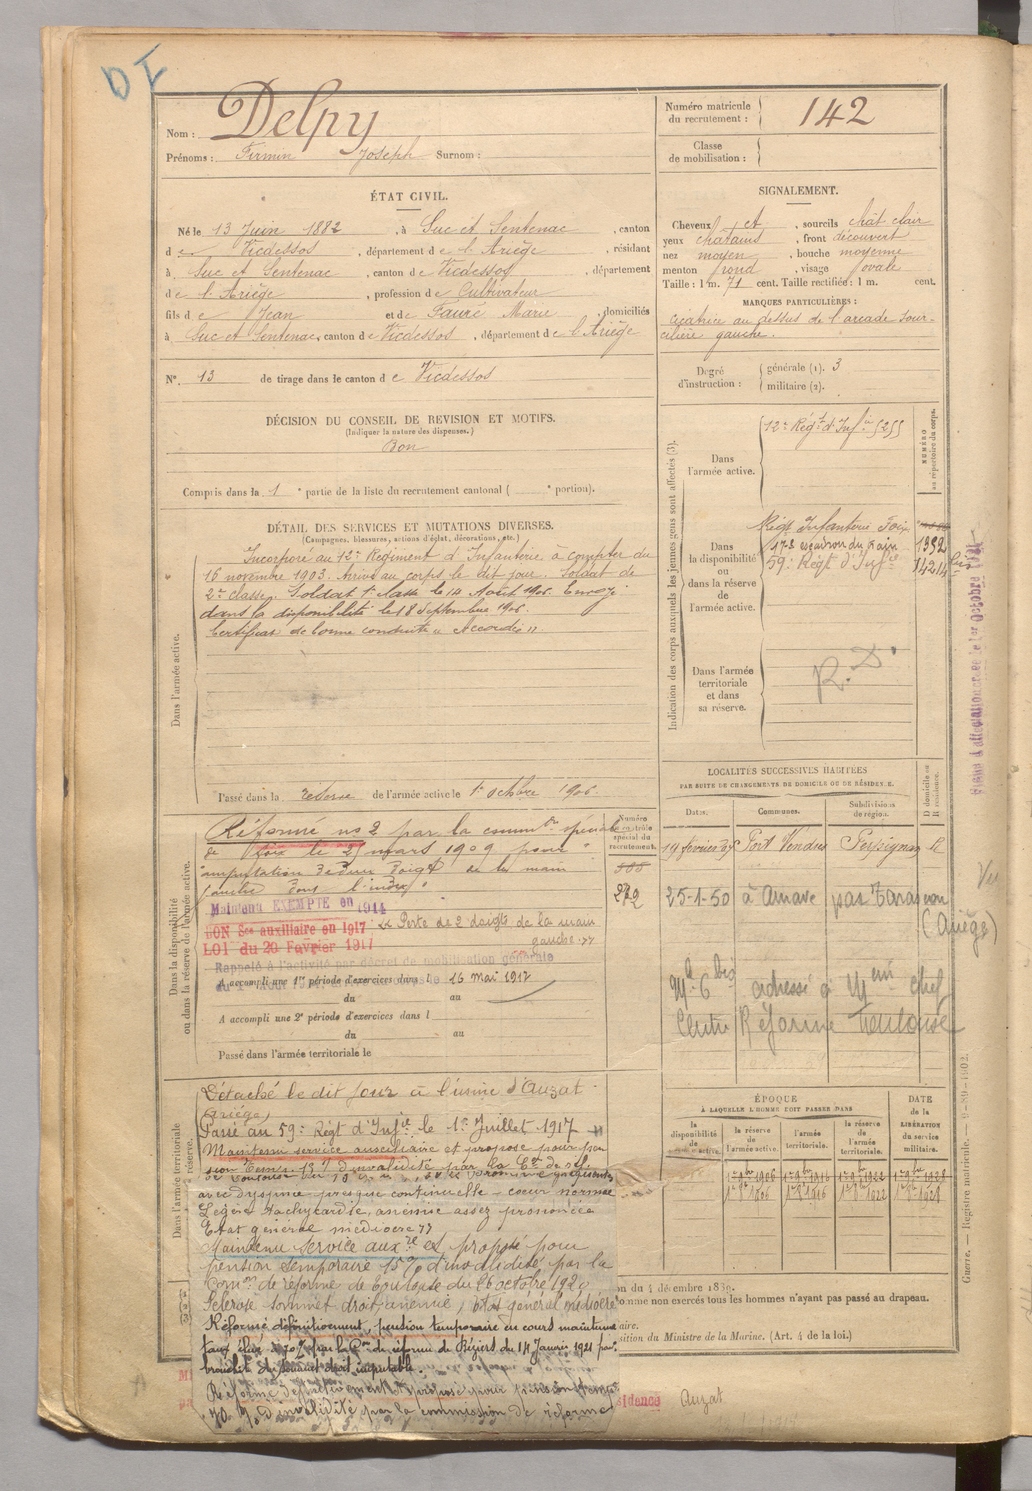 DI
Nom : Delpy
Prénoms : Firmin Joseph Surnom :
Numéro matricule du recrutement : 142
Classe de mobilisation :
ÉTAT CIVIL.
Né le 13 Juin 1882, à Suc et Sentenac, canton
de Vicdessos, département de l'Ariège, résidant
à Suc et Sentenac, canton de Vicdessos, département
de l'Ariège, profession de Cultivateur
fils de Jean et de Fauré Marie, domiciliés
à Suc et Sentenac, canton de Vicdessos, département de l'Ariège
N° 13 de tirage dans le canton de Vicdessos
SIGNALEMENT.
Cheveux et, sourcils chât clair
yeux chatains, front découvert
nez moyen, bouche moyenne
menton rond, visage ovale
Taille : 1 m. 71 cent. Taille rectifiée : 1 m. cent.
MARQUES PARTICULIÈRES :
cicatrice au dessus de l'arcade sour-
cilière gauche.
Degré d'instruction : générale (1). 3
militaire (2).
DÉCISION DU CONSEIL DE REVISION ET MOTIFS.
(Indiquer la nature des dispenses.)
Bon
Compris dans la 1e partie de la liste du recrutement cantonal ( e portion).
DÉTAIL DES SERVICES ET MUTATIONS DIVERSES.
(Campagnes, blessures, actions d'éclat, décorations, etc.)
Dans l'armée active.
Incorporé au 12e Régiment d'Infanterie à compter du
16 novembre 1903. Arrivé au corps le dit jour. Soldat de
2e classe. Soldat 1e classe le 14 Août 1905. Envoyé
dans la disponibilité le 18 Septembre 1906.
Certificat de bonne conduite « Accordé ».
Passé dans la réserve de l'armée active le 1er octobre 1906.
Indication des corps auxquels les jeunes gens sont affectés (3).
NUMÉRO au répertoire du corps.
Dans l'armée active.
12e Régt d'Infie
Dans la disponibilité ou dans la réserve de l'armée active.
Régt Infanterie Foix
17e escadron du train 1392
59e Régt d'Infie 14214 bis
Dans l'armée territoriale et dans sa réserve.
R.D.
LOCALITÉS SUCCESSIVES HABITÉES
PAR SUITE DE CHANGEMENTS DE DOMICILE OU DE RÉSIDENCE.
Dates. Communes. Subdivisions de région. D domicile ou R résidence.
19 février 07 Port Vendres Perpignan R
25-1-50 à Amave par Tarascon
(Ariège)
adressé à chef
Centre Réforme Toulouse
Dans la disponibilité ou dans la réserve de l'armée active.
Numéro au contrôle spécial du recrutement.
585
272
Réformé no 2 par la common spéciale
de Foix le 25 mars 1909 pour
amputation de deux doigts de la main
gauche dont l'index.
Maintenu EXEMPTÉ en 1914
BON See auxiliaire en 1917 Perte de 2 doigts de la main
LOI du 20 Février 1917 gauche
Rappelé à l'activité par décret de mobilisation générale
A accompli une 1re période d'exercices dans l 16 mai 1917
du au
A accompli une 2e période d'exercices dans l
du au
Passé dans l'armée territoriale le
Dans l'armée territoriale
Détaché le dit jour à l'usine d'Auzat
(Ariège)
Passé au 59e Régt d'Infie le 1er Juillet 1917
Maintenu service auxiliaire et proposé pour pen
sion Temp. 15 % d'invalidité par la Con de réf.
avec dyspnée presque continuelle - coeur normal
Légère tachycardie, anémie assez prononcée
Etat général médiocre
Maintenu service auxre et proposé pour
pension temporaire 15 % d'invalidité par la
Comon de réforme de Toulouse du 26 octobre 1920
Sclérose sommet droit, anémie, état général médiocre
Réformé définitivement, pension temporaire en cours maintenue
par la Con de réforme de Béziers du 14 Janvier 1921 pour
bronchite du sommet droit imputable.
d'invalidité par la commission de réforme
ÉPOQUE
À LAQUELLE L'HOMME DOIT PASSER DANS
DATE de la LIBÉRATION du service militaire.
la disponibilité de l'armée active.
la réserve de l'armée active.
l'armée territoriale.
la réserve de l'armée territoriale.
1er 9bre 1906 1er 9bre 1916 1er 9bre 1922 1er 9bre 1928
1er 8bre 1906 1er 8bre 1916 1er 8bre 1922 1er 8bre 1928
on du 4 décembre 1889.
omme non exercés tous les hommes n'ayant pas passé au drapeau.
aire.
sition du Ministre de la Marine. (Art. 4 de la loi.)
sidence Auzat
Guerre. — Registre matricule.